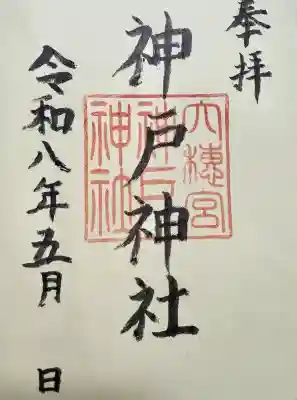 奉拝
神戸神社
六穂宮
神戸神社
令和八年五月 日